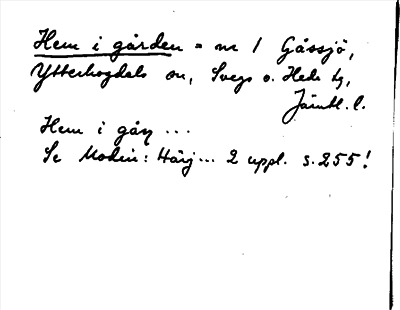 Hem i gården = nr 1 Gåssjö,
Ytterhogdals sn, Svegs o. Hede tg,
Jämtl. l.
Hem i gårn ...
Se Modin: Härj... 2 uppl. s. 255!